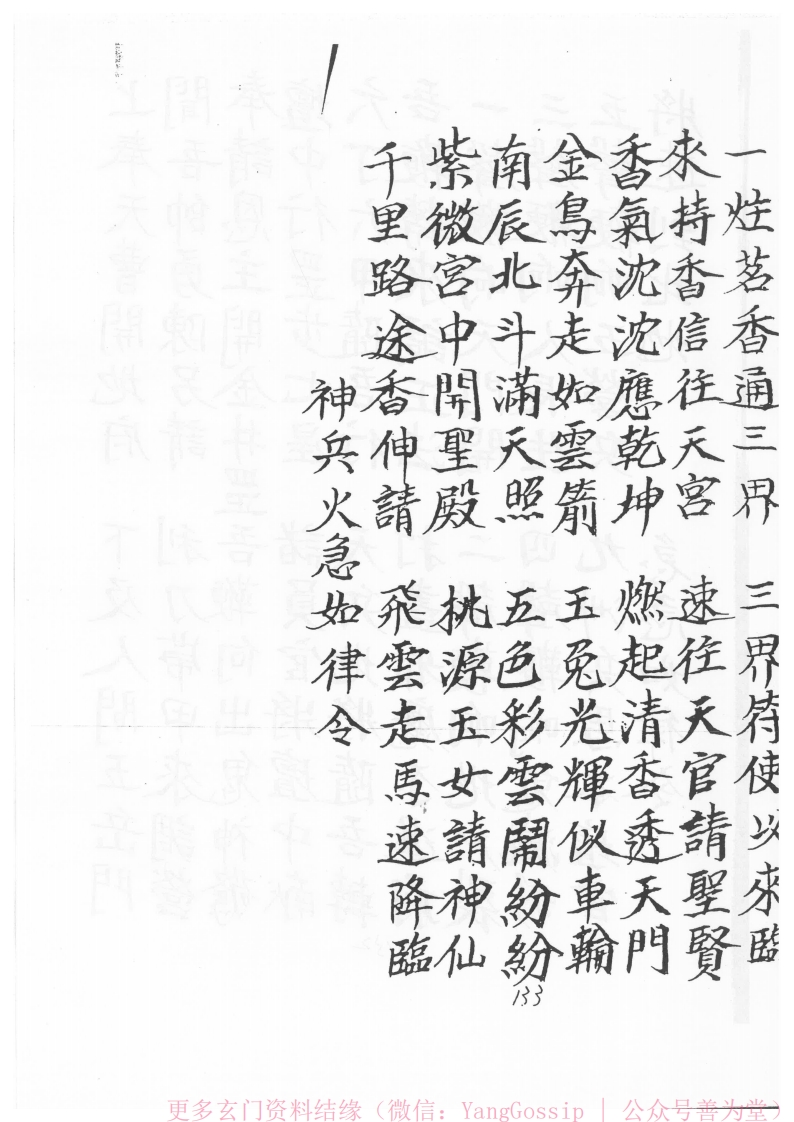 一炷茗香通三界　三界符使以來臨
來持香信往天宮　速往天官請聖賢
香氣沈沈應乾坤　燃起清香透天門
金鳥奔走如雲箭　玉兔光輝似車輪
南辰北斗滿天照　五色彩雲鬧紛紛
紫微宮中開聖殿　桃源玉女請神仙
千里路途香伸請　飛雲走馬速降臨
神兵火急如律令
133
更多玄门资料结缘（微信：YangGossip | 公众号善为堂）